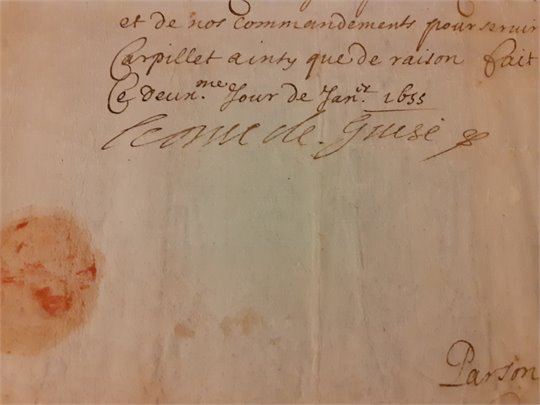 et de nos commandements pour servir
Carpillet ainsy que de raison fait
Ce deux.me Jour de Jan.er 1655
de Guise
Parson